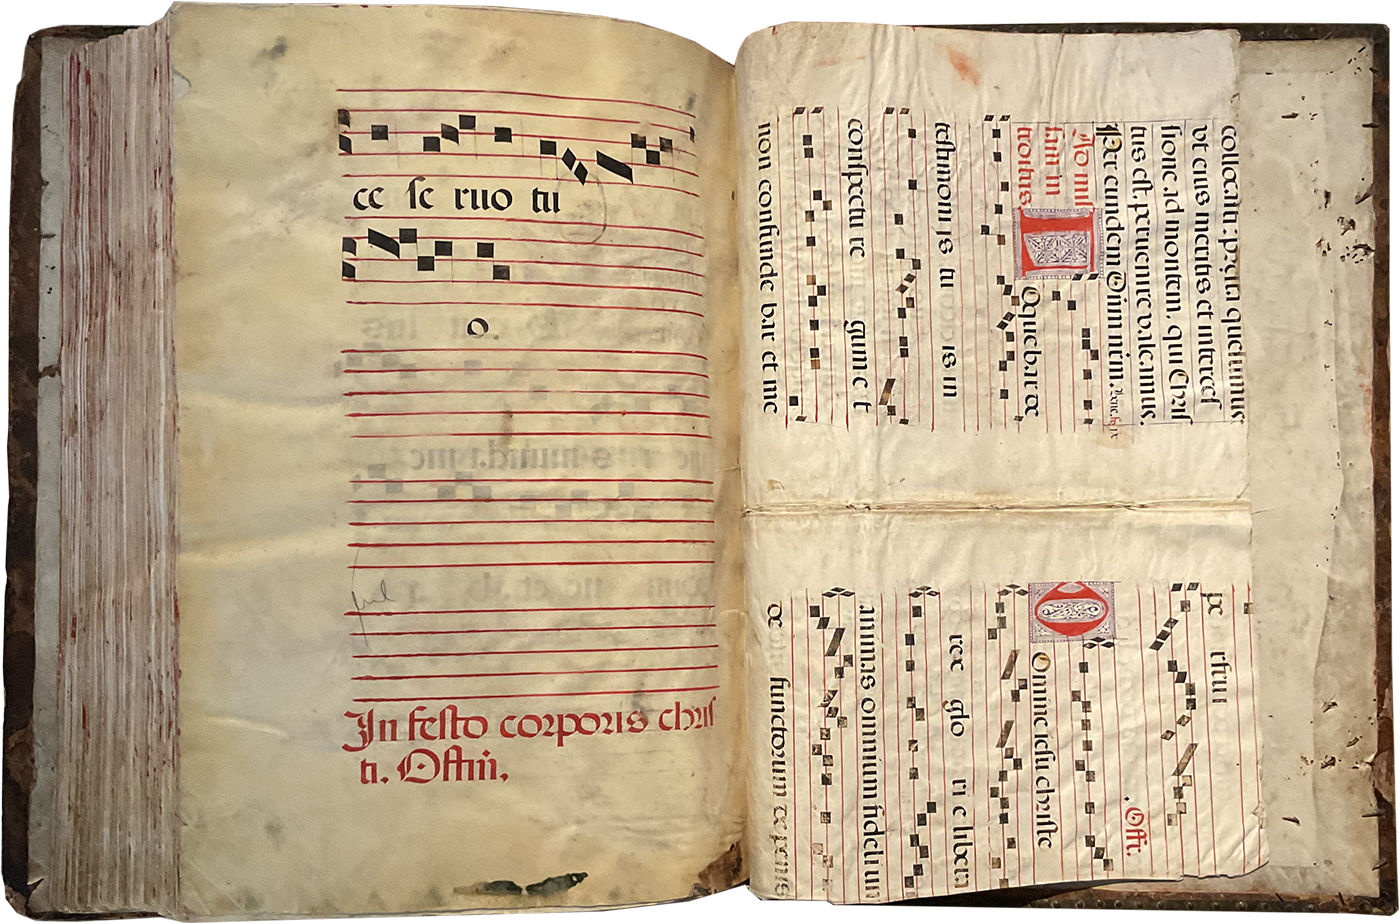 ce se ruo tu
o
In festo corporis chris
ti. Offm̄.
collocasti: presta quesumus
vt eius meritis et interces
sione. ad montem. qui Chris
tus est. peruenire valeamus.
Per eundem Dnm nrm.
Ad mis
sam in
troitus
LOquebar de
testimoni js tu is in
conspectu re gum et
non confunde bar et me
Offr.
DOmine iesu christe
rex glo ri e libera
animas omnium fideli um
de functorum de penis